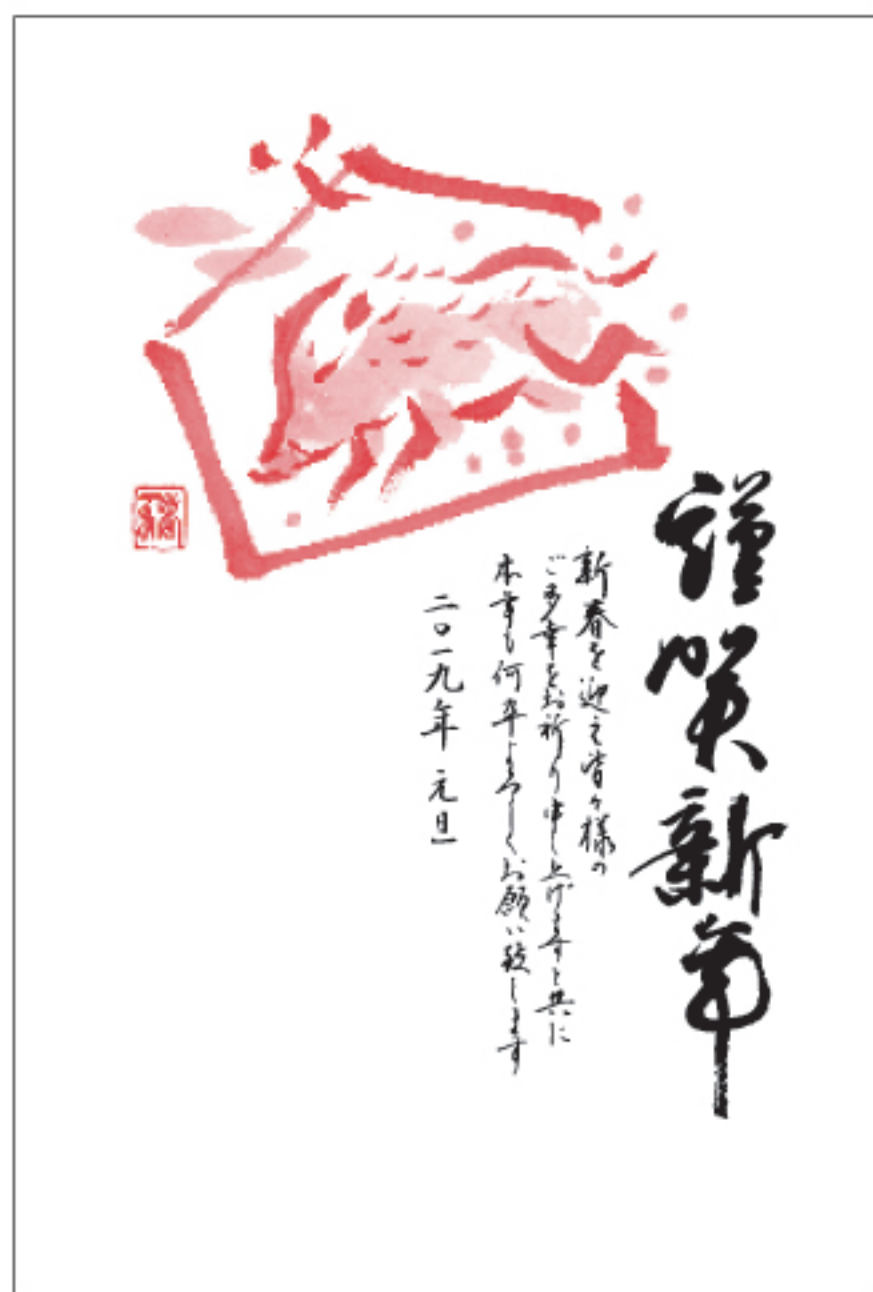 謹賀新年
新春を迎え皆々様の
ご多幸をお祈り申し上げますと共に
本年も何卒よろしくお願い致します
二〇一九年 元旦